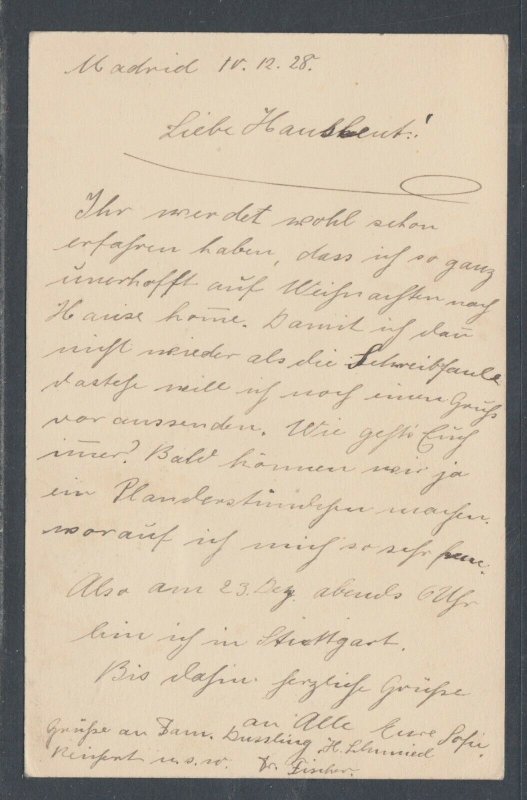 Madrid 10.12.28.
Liebe Hausleut!
Ihr werdet wohl schon
erfahren haben, dass ich so ganz
unerhofft auf Weihnachten nach
Hause kom̄e. Damit ich dan̄
nicht wieder als die Schreibfaule
dastehe will ich noch einen Gruß
voraussenden. Wie geht's Euch
im̄er? Bald können wir ja
ein Plauderstündchen machen.
worauf ich mich so sehr freue.
Also am 23. Dez. abends 6 Uhr
bin ich in Stuttgart.
Bis dahin herzliche Grüße
an Alle Eure Sofie.
Grüße an Fam. Dussling, H. Schmied
Reichert u.s.w. Dr. Fischer.